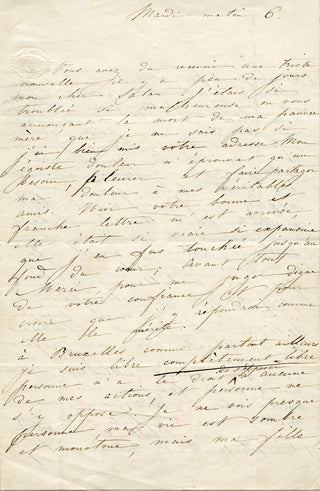 Mardi matin 6.
Vous avez du recevoir une triste
nouvelle il y a peu de jours
mon cher Satan j'étais si
troublée si malheureuse en vous
annonçant la mort de ma pauvre
mère que je ne sais pas si
j'ai bien mis votre adresse. Mon
egoiste douleur n'éprouvais qu'un
besoin, pleurer et faire partager
ma douleur à mes véritables
amis. Hier votre bonne &
franche lettre m'est arrivée,
elle était si vraie si expansive
que j'en fus touchée jusqu'au
fond du cœur; avant tout
merci, pour me juger digne
de votre confiance et pour
croire que j'y répondrai comme
elle le mérite.
à Bruxelles comme partout ailleurs
je suis libre complètement libre
personne n'a le droit d'disposer aucune
de mes actions, et personne ne
s'y oppose je ne vois presque
personne ma vie est sombre
et monotone, mais ma fille